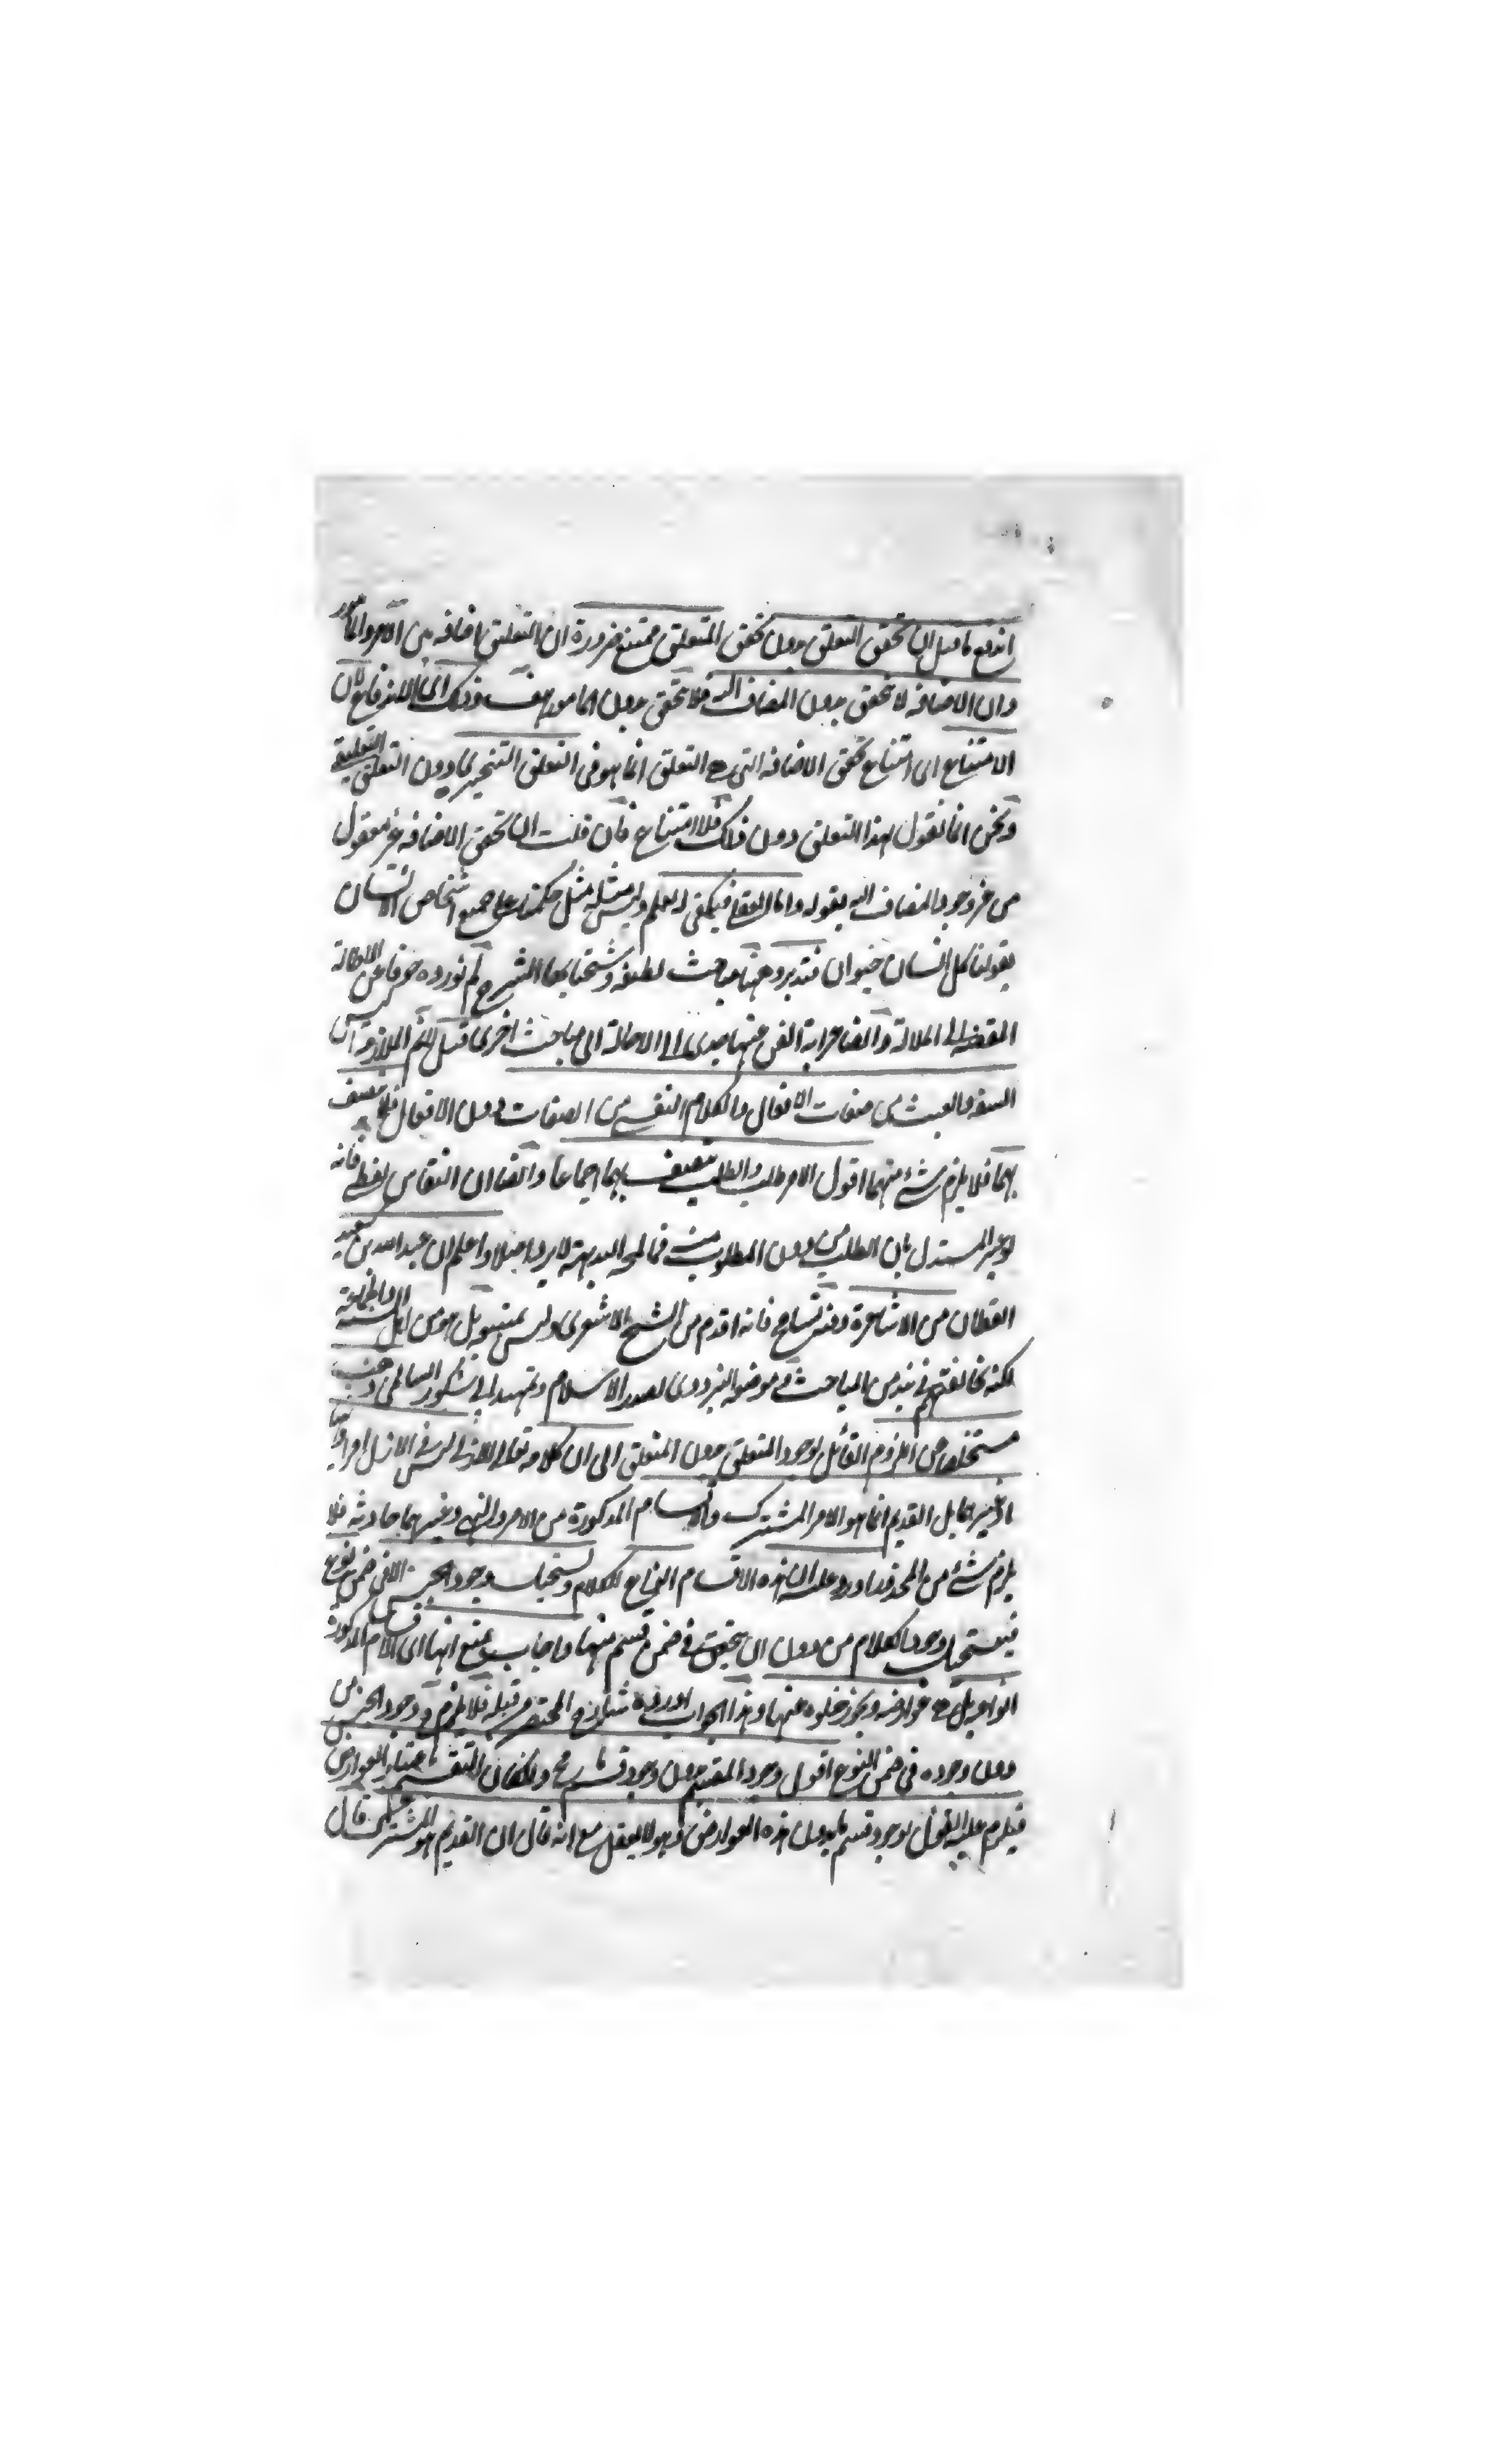 اندفع ما قيل ان تحقق التعلق بدون تحقق المتعلق ممتنع ضرورة ان التعلق اضافة بين الامر والمأمور
وان الاضافة لا تتحقق بدون المضاف اليه فلا تتحقق بدون المأمور هف وذلك اى الاندفاع لان
الامتناع اى امتناع تحقق الاضافة التى هى التعلق انما هو فى التعلق التنجيزى دون التعلق التعليقى
ونحن انما نقول بهذا التعلق دون ذلك فلا امتناع فان قلت ان تحقق الاضافة غير معقول
من غير وجود المضاف اليه بقوله واما العقلى فيكفى له العلم وليس مثله مثل حكمنا على جميع اشخاص الانسان
بقولنا كل انسان حيوان فتدبر وههنا مباحث لطيفة وشحنا بها الشرح لم نورده خوفا عن الاطالة
المفضية الى الملالة وايضا غرابة الفن عنها الى الاحالة الى مباحث اخرى قيل الملازمة ان
السفه والعبث من صفات الافعال والكلام النفسى من الصفات دون الافعال فلا يتصف
بهما فلا يلزم شئ منهما اقول الامر طلب والطلب يتصف بهما اجماعا وايضا ان النقاش لفظى فانه
لو عبر المستدل بان الطلب من دون المطلوب منه فى لمحة البديهة لا يرد اصلا واعلم ان عبد الله بن سعيد
القطان من الاشاعرة وفيه تسامح فانه اقدم من الشيخ الاشعرى وليس بمتبع بل هو من اهل السنة والجماعة
لكنه يخالفهم فى نبذ من المباحث فى موضع البزدوى لصدر الاسلام وتمهيد ابى شكور السالمى ذهب
مستخلصا من الزوم القائل بوجود التعلق بدون المتعلق الى ان كلامه تعالى الازلى ليس فى الازل امرا ونهيا
او غيرهما بل القديم انما هو الامر المشترك والاقسام المذكورة من الامر والنهى وغيرهما حادثة فلا
يلزم شئ من المحذور اورد عليه ان هذه الاقسام انواع للكلام ويستحيل وجود الجنس الا فى ضمن نوع
فيستحيل وجود الكلام من دون ان يتحقق فى ضمن قسم منها واجاب بمنع انها اى الاقسام المذكورة
انواعه بل هى عوارضه ويجوز خلوه عنها وهذا الجواب اورده شارح المختصر من قبله فلا يلزم وجود الجنس
دون وجوده فى ضمن النوع اقول وجود المقسم بدون وجود قسم ما مح ولو كان التقسيم باعتبار العوارض
فيلزم عليه القول بوجود قسم ما بدون هذه العوارض وهو لا يعقل مع انه قال ان القديم هو المشترك قال